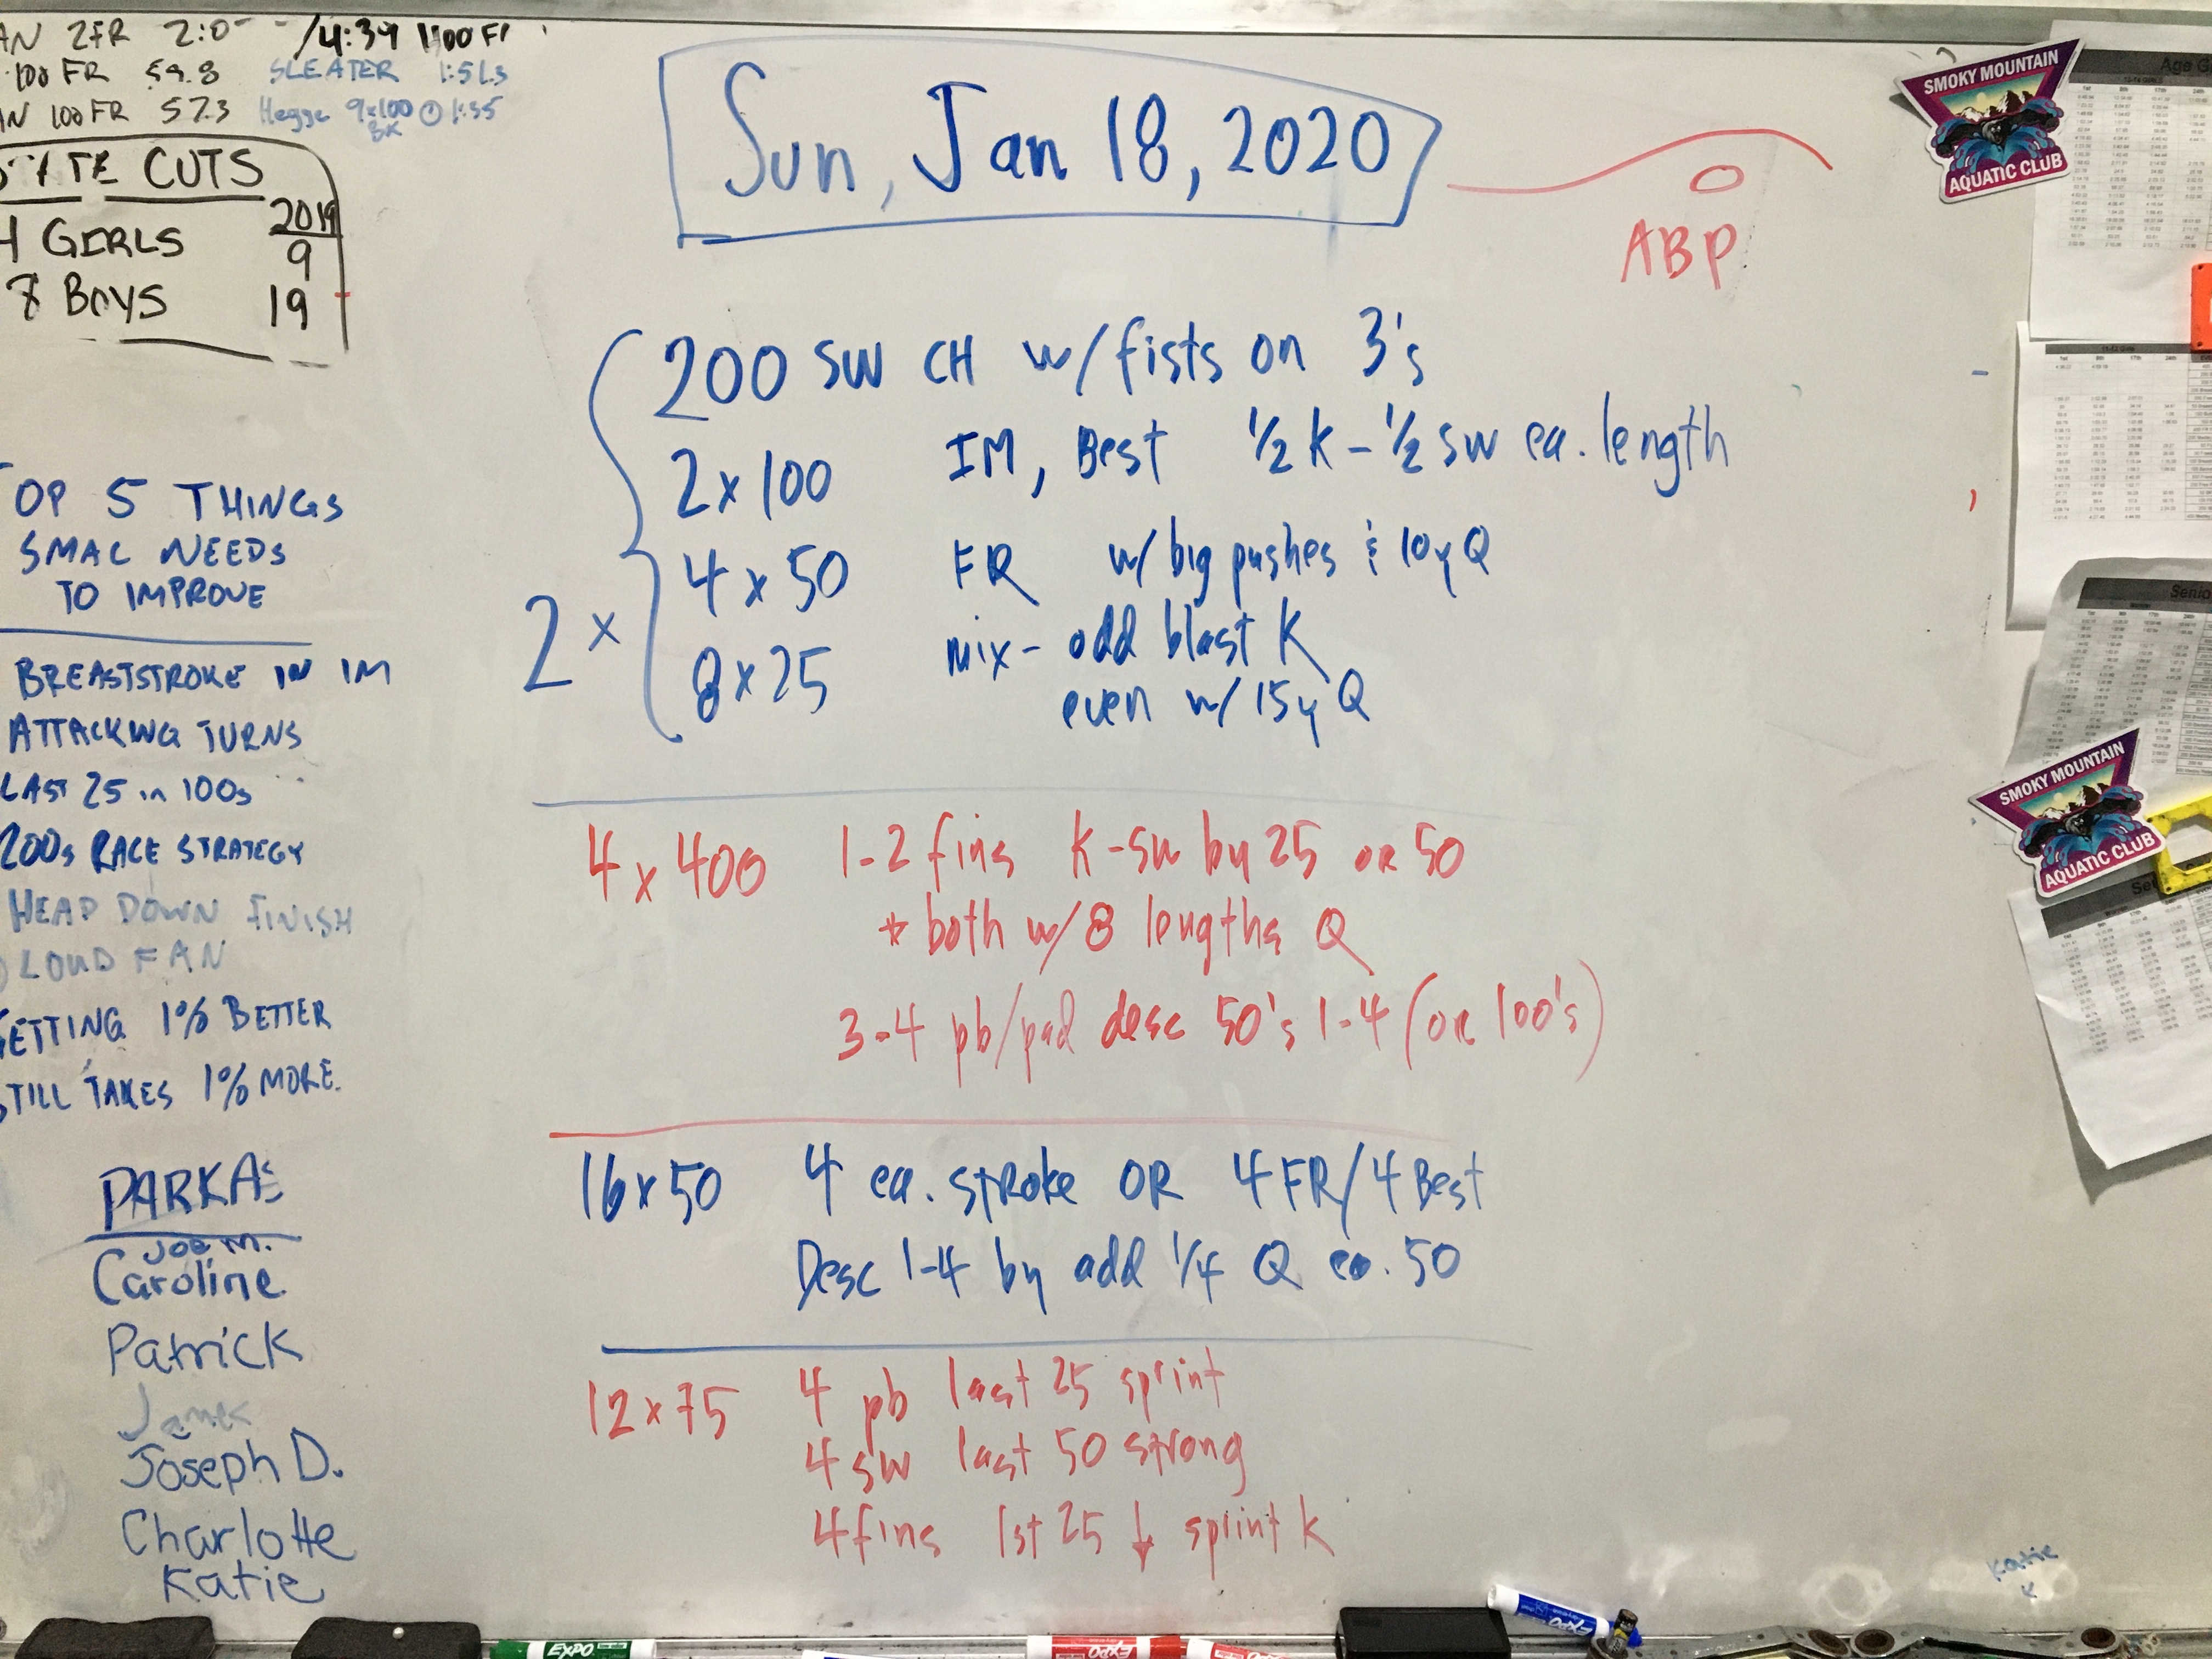 AN 2FR 2:0
/4:34 1100 FR
100 FR 59.8
SLEATER 1:51.3
AN 100 FR 57.3
Hegge 9x100 @ 1:35
BK
TE CUTS
2019
GIRLS 9
8 BOYS 19
OP 5 THINGS
SMAC NEEDS
TO IMPROVE
BREASTSTROKE IN IM
ATTACKING TURNS
LAST 25 in 100s
200s RACE STRATEGY
HEAD DOWN FINISH
LOUD FAN
ETTING 1% BETTER
STILL TAKES 1% MORE.
PARKAS
JOE M.
Caroline
Patrick
James
Joseph D.
Charlotte
Katie
Sun, Jan 18, 2020
ABP
2 x
200 SW CH w/fists on 3's
2 x 100 IM, Best 1/2 K - 1/2 SW ea. length
4 x 50 FR w/ big pushes & 10y Q
8 x 25 mix - odd blast K
even w/ 15y Q
4 x 400 1-2 fins K-sw by 25 OR 50
* both w/ 8 lengths Q
3-4 pb/pad desc 50's 1-4 (or 100's)
16 x 50 4 ea. stroke OR 4 FR/4 Best
Desc 1-4 by add 1/4 Q ea. 50
12 x 75 4 pb last 25 sprint
4 sw last 50 strong
4 fins 1st 25 ↓ sprint K
SMOKY MOUNTAIN
AQUATIC CLUB
SMOKY MOUNTAIN
AQUATIC CLUB
Katie
K
EXPO
EXPO
EXPO
EXPO